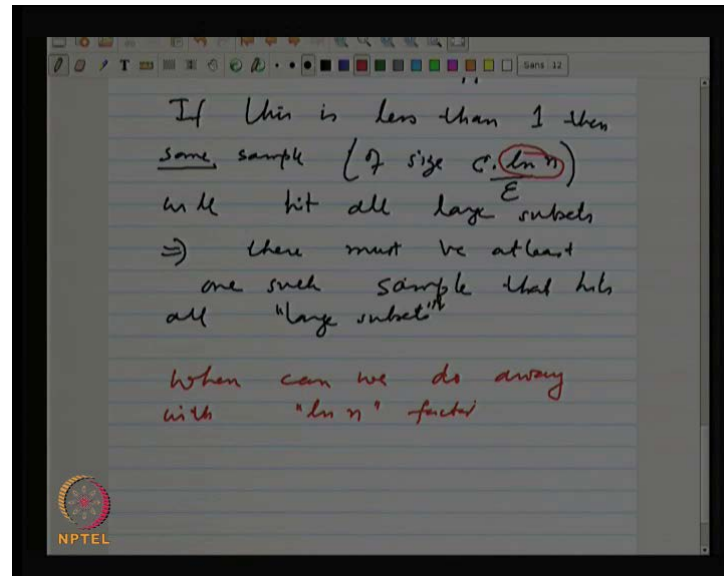 T Sans 12
If this is less than 1 then
some sample (of size c. ln n / ε)
will hit all large subsets
⇒) there must be atleast
one such sample that hits
all "large subsets"
When can we do away
with "ln n" factor
NPTEL